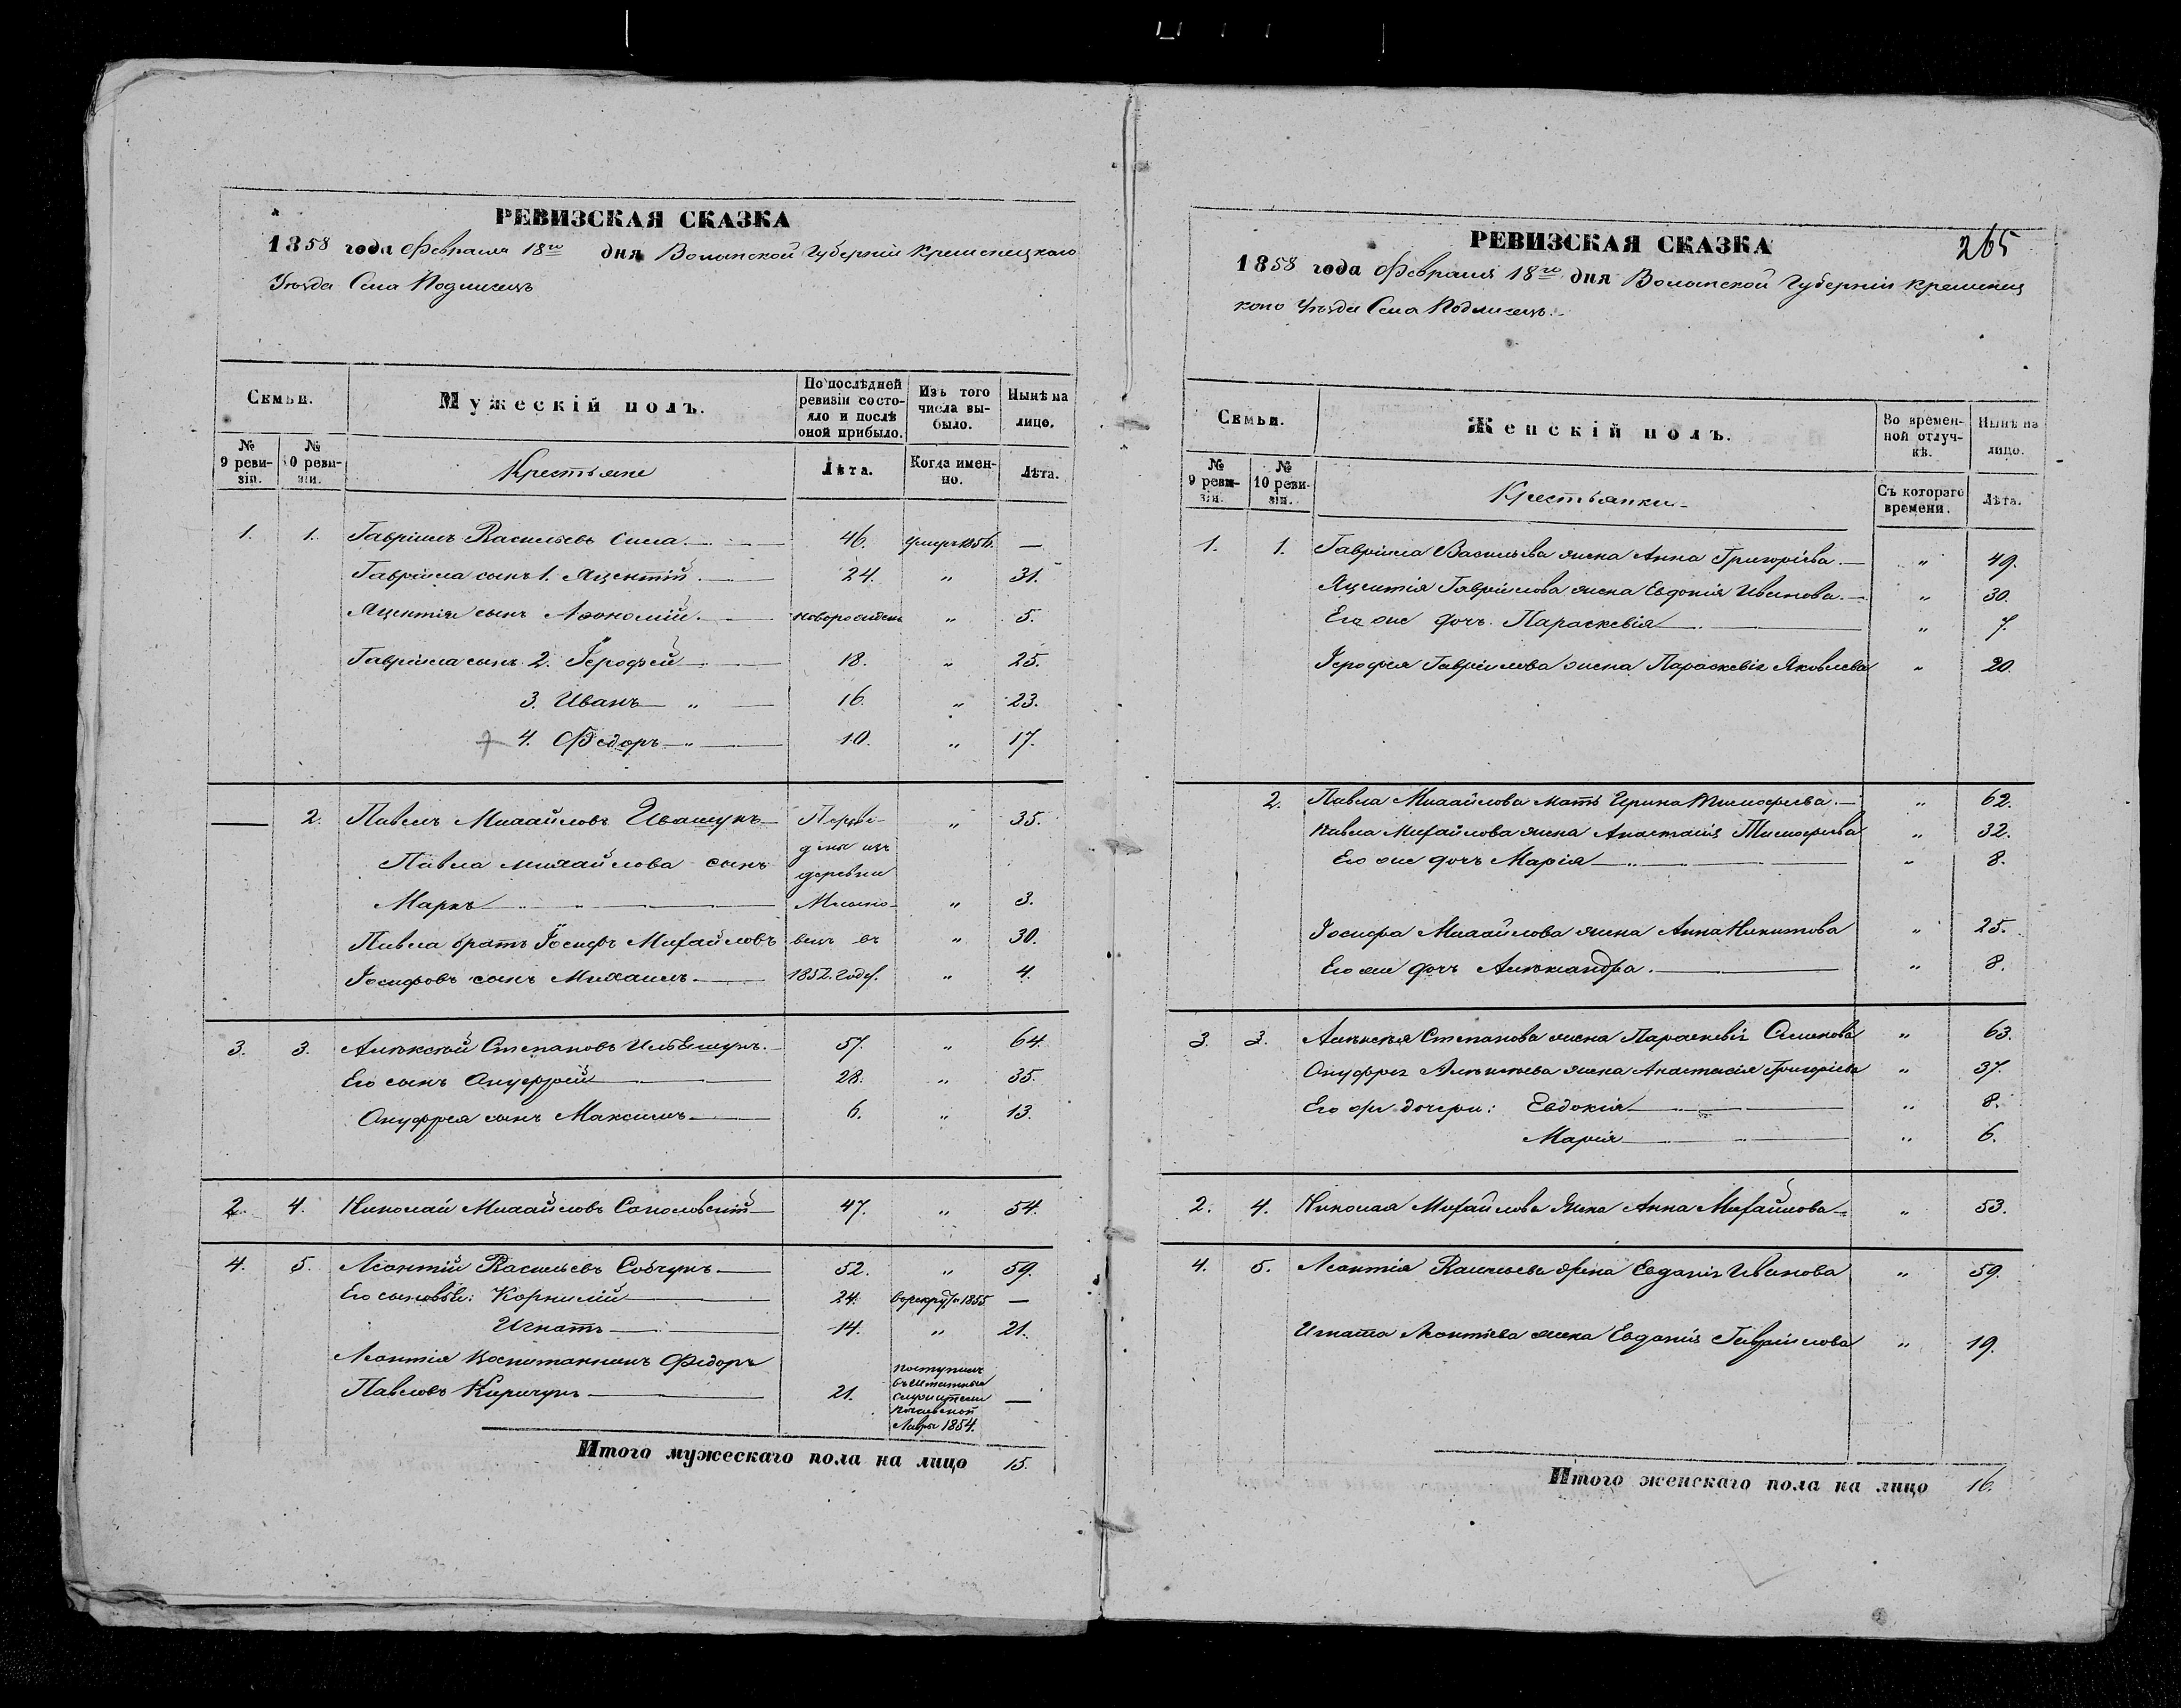 РЕВИЗСКАЯ СКАЗКА
1858 года Февраля 18го дня Волынской Губерніи Кременецкаго
Уѣзда Села Подлисецъ
Семьи.
Мужескій полъ.
По послѣдней ревизіи состояло и послѣ оной прибыло.
Изъ того числа выбыло.
Нынѣ на лицо.
№ 9 ревизіи.
№ 10 ревизіи.
Крестьяне
Лѣта.
Когда именно.
Лѣта.
1. 1. Гавріилъ Васильевъ Сила 46. умеръ 1856. —
Гавріила сынъ 1. Яцентій 24. „ 31.
Яцентія сынъ новорожденъ „ 5.
Гавріила сынъ 2. Іерофей 18. „ 25.
3. Иванъ „ 16. „ 23.
4. Ѳедоръ „ 10. „ 17.
— 2. Павелъ Михайловъ Ивашукъ Переве- „ 35.
дены изъ
Павла Михайлова сынъ деревни
Маркъ „ 3.
Павла братъ Іосифъ Михайловъ въ „ 30.
Іосифовъ сынъ Михаилъ 1852. году. „ 4.
3. 3. Алексѣй Степановъ 57. „ 64.
Его сынъ Онуфрей 28. „ 35.
Онуфрея сынъ Максимъ 6. „ 13.
2. 4. Николай Михайловъ Соколовскій 47. „ 54.
4. 5. Леонтій Васильевъ Собчукъ 52. „ 59.
Его сыновья: Корнилій 24. въ рекруты 1855 —
Игнатъ 14. „ 21.
Леонтія воспитанникъ Федоръ поступилъ
въ штатные
Павловъ Киричукъ 21. служители —
Почаевской
Лавры 1854.
Итого мужескаго пола на лицо 15.
265
РЕВИЗСКАЯ СКАЗКА
1858 года Февраля 18го дня Волынской Губерніи Кременец
кого Уѣзда Села Подлисецъ
Семьи.
Женскій полъ.
Во временной отлучкѣ.
Нынѣ на лицо.
№ 9 ревизіи.
№ 10 ревизіи.
Крестьянки
Съ котораго времени.
Лѣта.
1. 1. Гавріила Васильева жена Анна Григорієва „ 49.
Яцентія Гавріилова жена Евдокія Иванова „ 30.
Его же дочь Параскевія „ 7.
Іерофея Гавріилова жена Параскевія Яковлева „ 20.
2. Павла Михайлова мать Ирина Тимофеева „ 62.
Павла Михайлова жена Анастасія Тимофеева „ 32.
Его же дочь Марія „ 8.
Іосифа Михайлова жена Анна Никитова „ 25.
Его же дочь Александра „ 8.
3. 3. Алексѣя Степанова жена Параскевія Семенова „ 63.
Онуфрея Алексѣева жена Анастасія Григоріева „ 37.
Его же дочери: Евдокія „ 8.
Марія „ 6.
2. 4. Николая Михайлова жена Анна Михайлова „ 53.
4. 5. Леонтія Васильева жена Евдокія Иванова „ 59.
Игната Леонтіева жена Евдокія Гавріилова „ 19.
Итого женскаго пола на лицо 16.